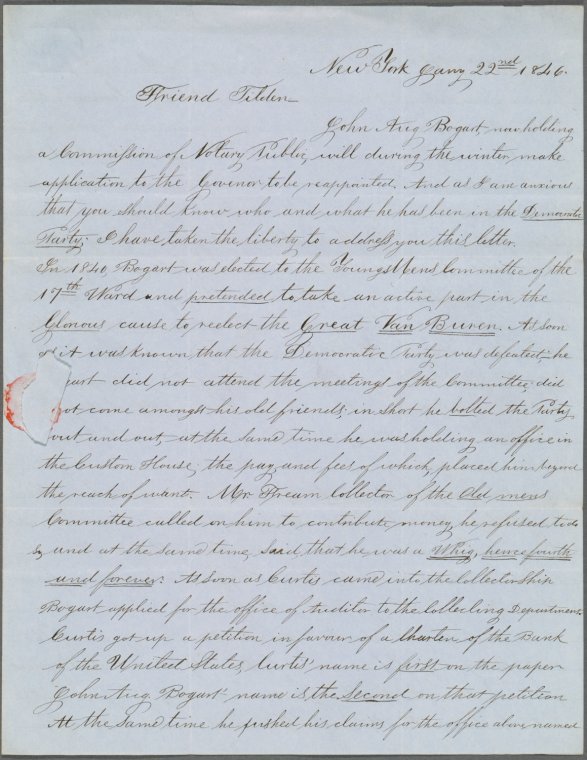 New York Jany 22nd 1846.
Friend Tilden
John Aug Bogart, now holding
a Commission of Notary Public, will during the winter make
application to the Govenor to be reappointed. And as I am anxious
that you should know who and what he has been in the Democratic
Party; I have taken the liberty to address you this letter.
In 1840, Bogart was elected to the Youngs Mens Committee of the
17th Ward and pretended to take an active part in the
Glorious cause to reelect the Great Van Buren. As soon
it was known that the Democratic Party was defeated, he
did not attend the meetings of the Committee, did
not come amongst his old friends, in short he bolted the Party
out and out, at the same time he was holding an office in
the Custom House, the pay and fees of which, placed him beyond
the reach of want. Mr Fream Collector of the Old mens
Committee called on him to contribute money, he refused to do
so, and at the same time, said, that he was a Whig, hencefourth
and forever. As soon as Curtis came into the Collectorship
Bogart applied for the office of Auditor to the Collecting Department.
Curtis got up a petition in favour of a Charter of the Bank
of the United States, Curtis' name is first on the paper
John Aug. Bogart' name is the Second on that petition
At the same time he pushed his claims for the office above named